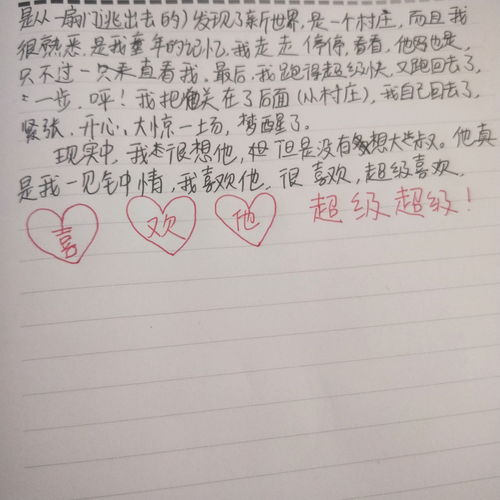 是从一扇门逃出去的）发现了新世界，是一个村庄，而且我
很熟悉，是我童年的记忆，我走走停停，看看，他也是，
只不过一只来直看我。最后，我跑得超级快，又跑回去了，
一步，呯！我把他关在了后面（从村庄），我自己回去了，
紧张，开心，大惊一场，梦醒了。
现实中，我也很想他，但是没有多想大叔。他真
是我一见钟情，我喜欢他，很喜欢，超级喜欢，
喜 欢 他 超级超级！